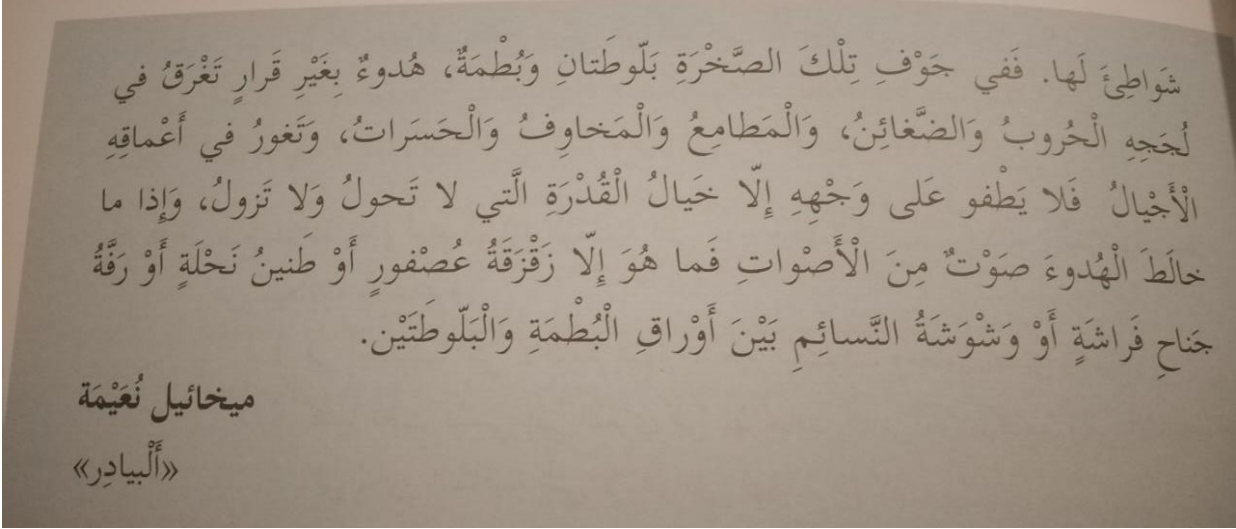 شَواطِئَ لَها. فَفي جَوْفِ تِلْكَ الصَّخْرَةِ بَلّوطَتانِ وَبُطْمَةٌ، هُدوءٌ بِغَيْرِ قَرارٍ تَغْرَقُ في
لُجَجِهِ الْحُروبُ وَالضَّغائِنُ، وَالْمَطامِعُ وَالْمَخاوِفُ وَالْحَسَراتُ، وَتَغورُ في أَعْماقِهِ
الْأَجْيالُ فَلا يَطْفو عَلى وَجْهِهِ إِلّا خَيالُ الْقُدْرَةِ الَّتي لا تَحولُ وَلا تَزولُ، وَإِذا ما
خالَطَ الْهُدوءَ صَوْتٌ مِنَ الْأَصْواتِ فَما هُوَ إِلّا زَقْزَقَةُ عُصْفورٍ أَوْ طَنينُ نَحْلَةٍ أَوْ رَفَّةُ
جَناحِ فَراشَةٍ أَوْ وَشْوَشَةُ النَّسائِمِ بَيْنَ أَوْراقِ الْبُطْمَةِ وَالْبَلّوطَتَيْن.
ميخائيل نُعَيْمَة
«أَلْبيادِر»